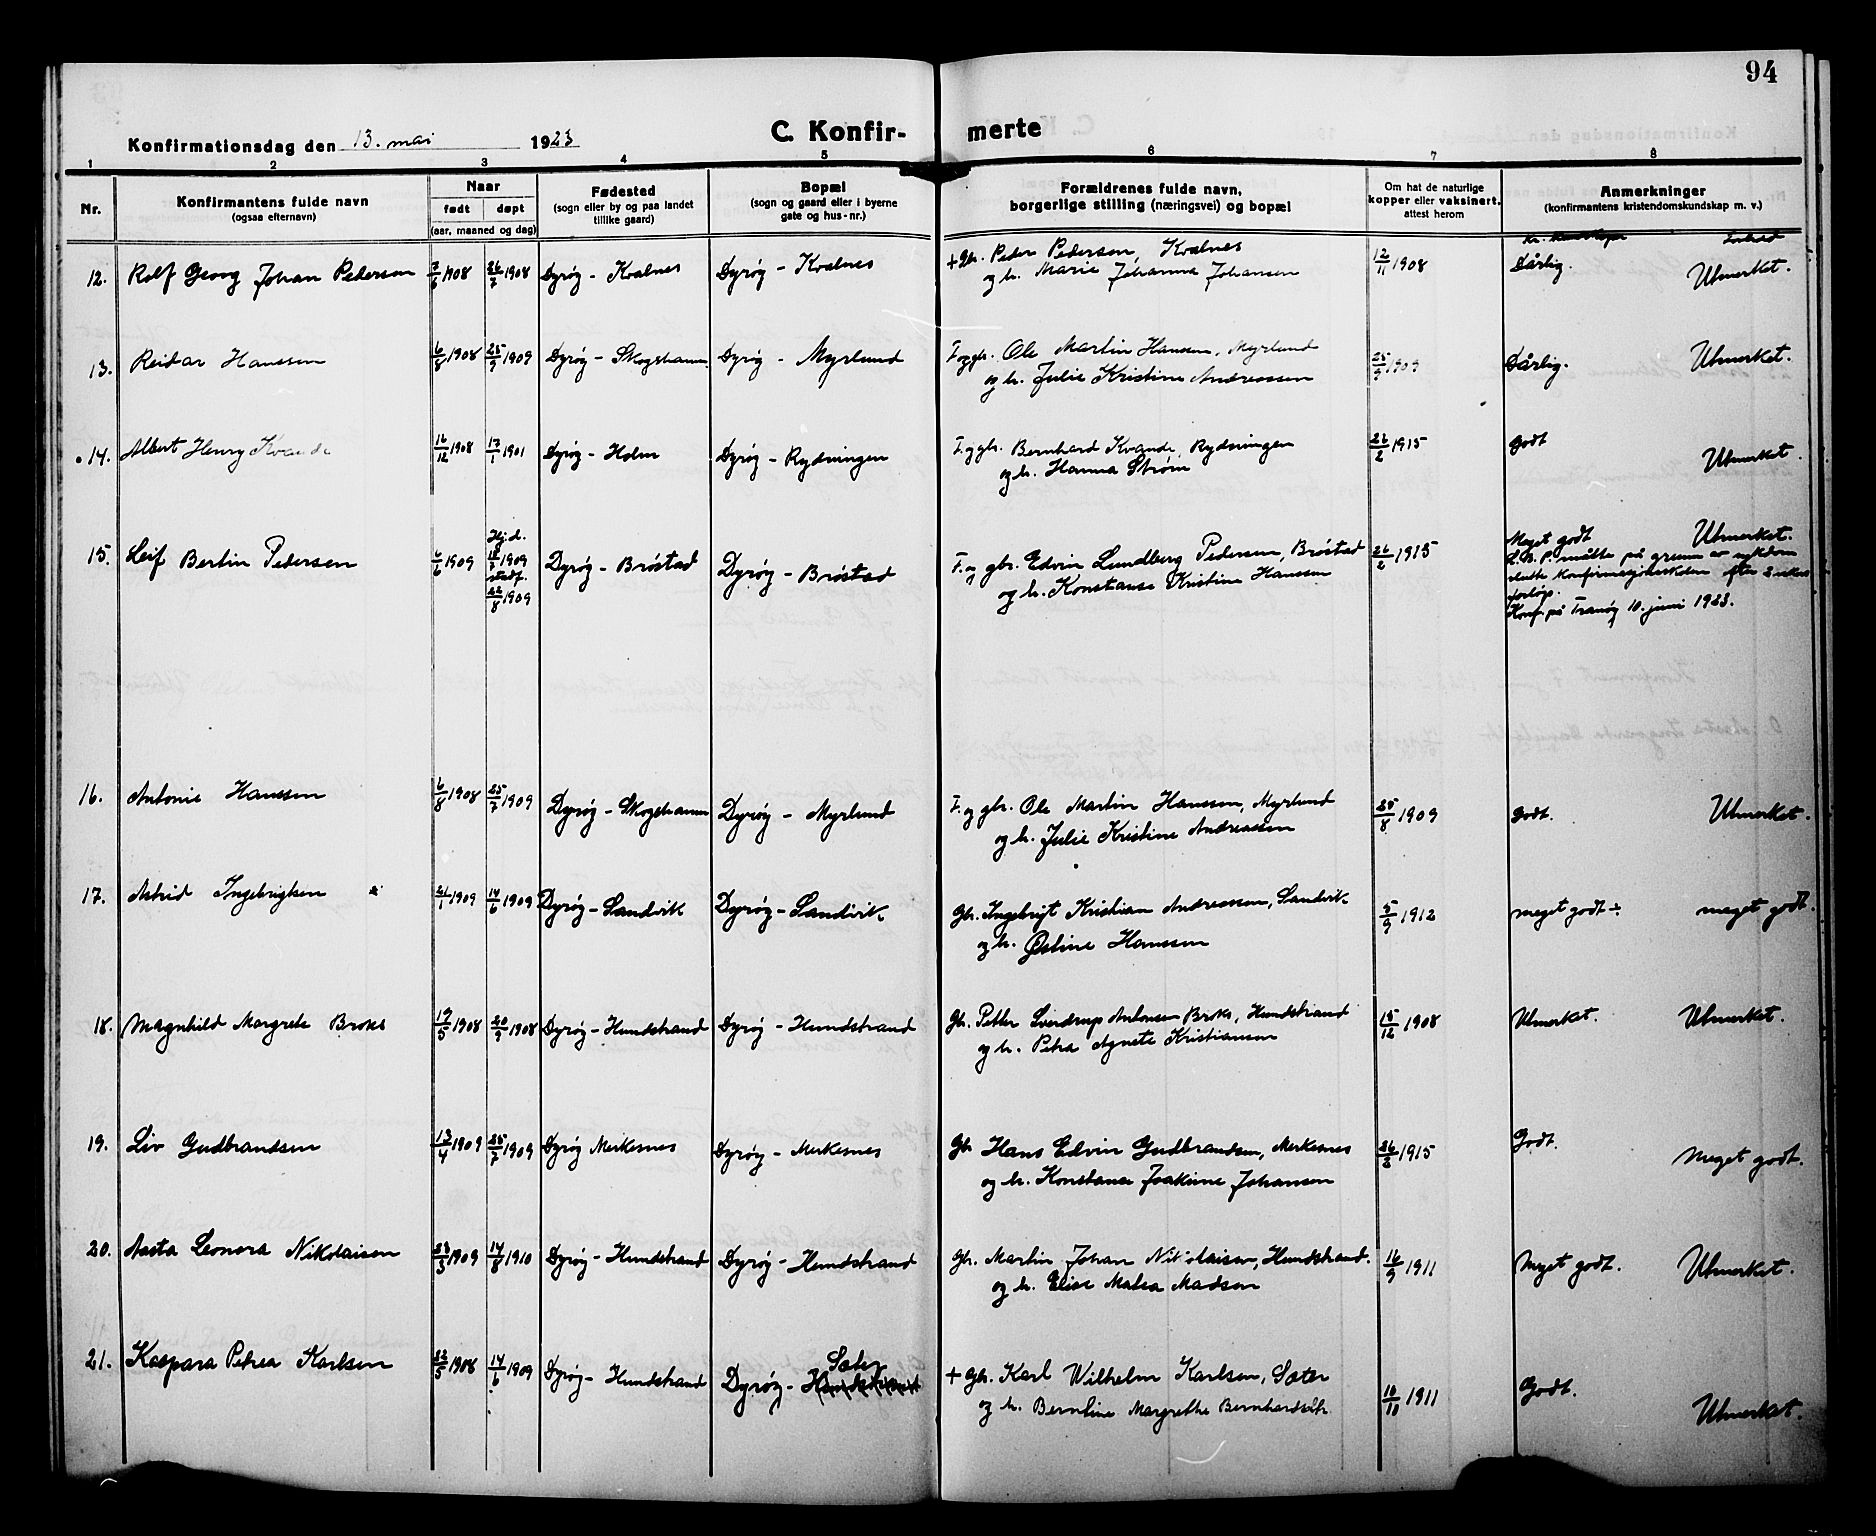 94
Konfirmationsdag den 13. mai 1923
C. Konfirmerte
1 2 3 4 5 6 7 8
Nr.
Konfirmantens fulde navn
(ogsaa efternavn)
Naar
født døpt
(aar, maaned og dag)
Fødested
(sogn eller by og paa landet
tillike gaard)
Bopæl
(sogn og gaard eller i byerne
gate og hus-nr.)
Forældrenes fulde navn,
borgerlige stilling (næringsvei) og bopæl
Om hat de naturlige
kopper eller vaksinert,
attest herom
Anmerkninger
(konfirmantens kristendomskundskap m. v.)
12. Rolf Georg Johan Pedersen 7/6 1908 26/7 1908 Dyrøy - Kvalnes Dyrøy - Kvalnes + Gbr. Peder Pedersen, Kvalnes 12/11 1908 Dårlig. Utmerket.
og h. Marie Johanna Johansen
13. Reidar Hanssen 6/8 1908 25/9 1909 Dyrøy - Skogshamn Dyrøy - Myrlund F. og gbr. Ole Martin Hansen, Myrlund 25/9 1909 Dårlig. Utmerket.
og h. Julie Kristine Andreassen
14. Albert Henry Kvande 16/12 1908 17/1 1901 Dyrøy - Holm Dyrøy - Rydningen F. og gbr. Bernhard Kvande, Rydningen 26/2 1915 Godt Utmerket.
og h. Hanna Strøm
15. Leif Bertin Pedersen 6/6 1909 Hj.d. 1909 stadf. 22/8 1909 Dyrøy - Brøstad Dyrøy - Brøstad F. og gbr. Edvin Lundberg Pedersen, Brøstad 26/2 1915 Meget godt Utmerket.
og h. Konstanse Kristine Hanssen
L. B. P. måtte på grunn av sykdom
slutte konfirmasjonsskolen efter 2 ukers
forløp.
Konf. på Tranøy 10. juni 1923.
16. Antonie Hanssen 6/8 1908 25/7 1909 Dyrøy - Skogshamn Dyrøy - Myrlund F. og gbr. Ole Martin Hanssen, Myrlund 25/8 1909 Godt. Utmerket.
og h. Julie Kristine Andreassen
17. Astrid Ingebrigtsen 21/1 1909 14/6 1909 Dyrøy - Sandvik Dyrøy - Sandvik Gbr. Ingebrigt Kristian Andreassen, Sandvik 5/9 1912 meget godt ÷ meget godt.
og h. Østine Hanssen
18. Magnhild Margrete Broks 19/5 1908 20/9 1908 Dyrøy - Hundstrand Dyrøy - Hundstrand Gbr. Petter Sverdrup Antonsen Broks, Hundstrand 15/12 1908 Utmerket. Utmerket.
og h. Petra Agnete Kristiansen
19. Liv Gudbrandsen 13/4 1909 25/7 1909 Dyrøy Merkesnes Dyrøy - Merkesnes Gbr. Hans Edvin Gudbrandsen, Merkesnes 26/2 1915 Godt. Meget godt.
og h. Konstanse Joakime Johansen
20. Aasta Leonora Nikolaisen 23/3 1909 14/8 1910 Dyrøy - Hundstrand Dyrøy - Hundstrand Gbr. Martin Johan Nikolaisen, Hundstrand. 16/9 1911 Meget godt. Utmerket.
og h. Elise Matea Madsen
21. Kaspara Petrea Karlsen 22/5 1908 14/6 1909 Dyrøy - Hundstrand Dyrøy - Hundstrand Sæter + Gbr. Karl Wilhelm Karlsen, Sæter 10/10 1911 Godt. Utmerket.
og h. Berntine Margrethe Bernhardsdtr.